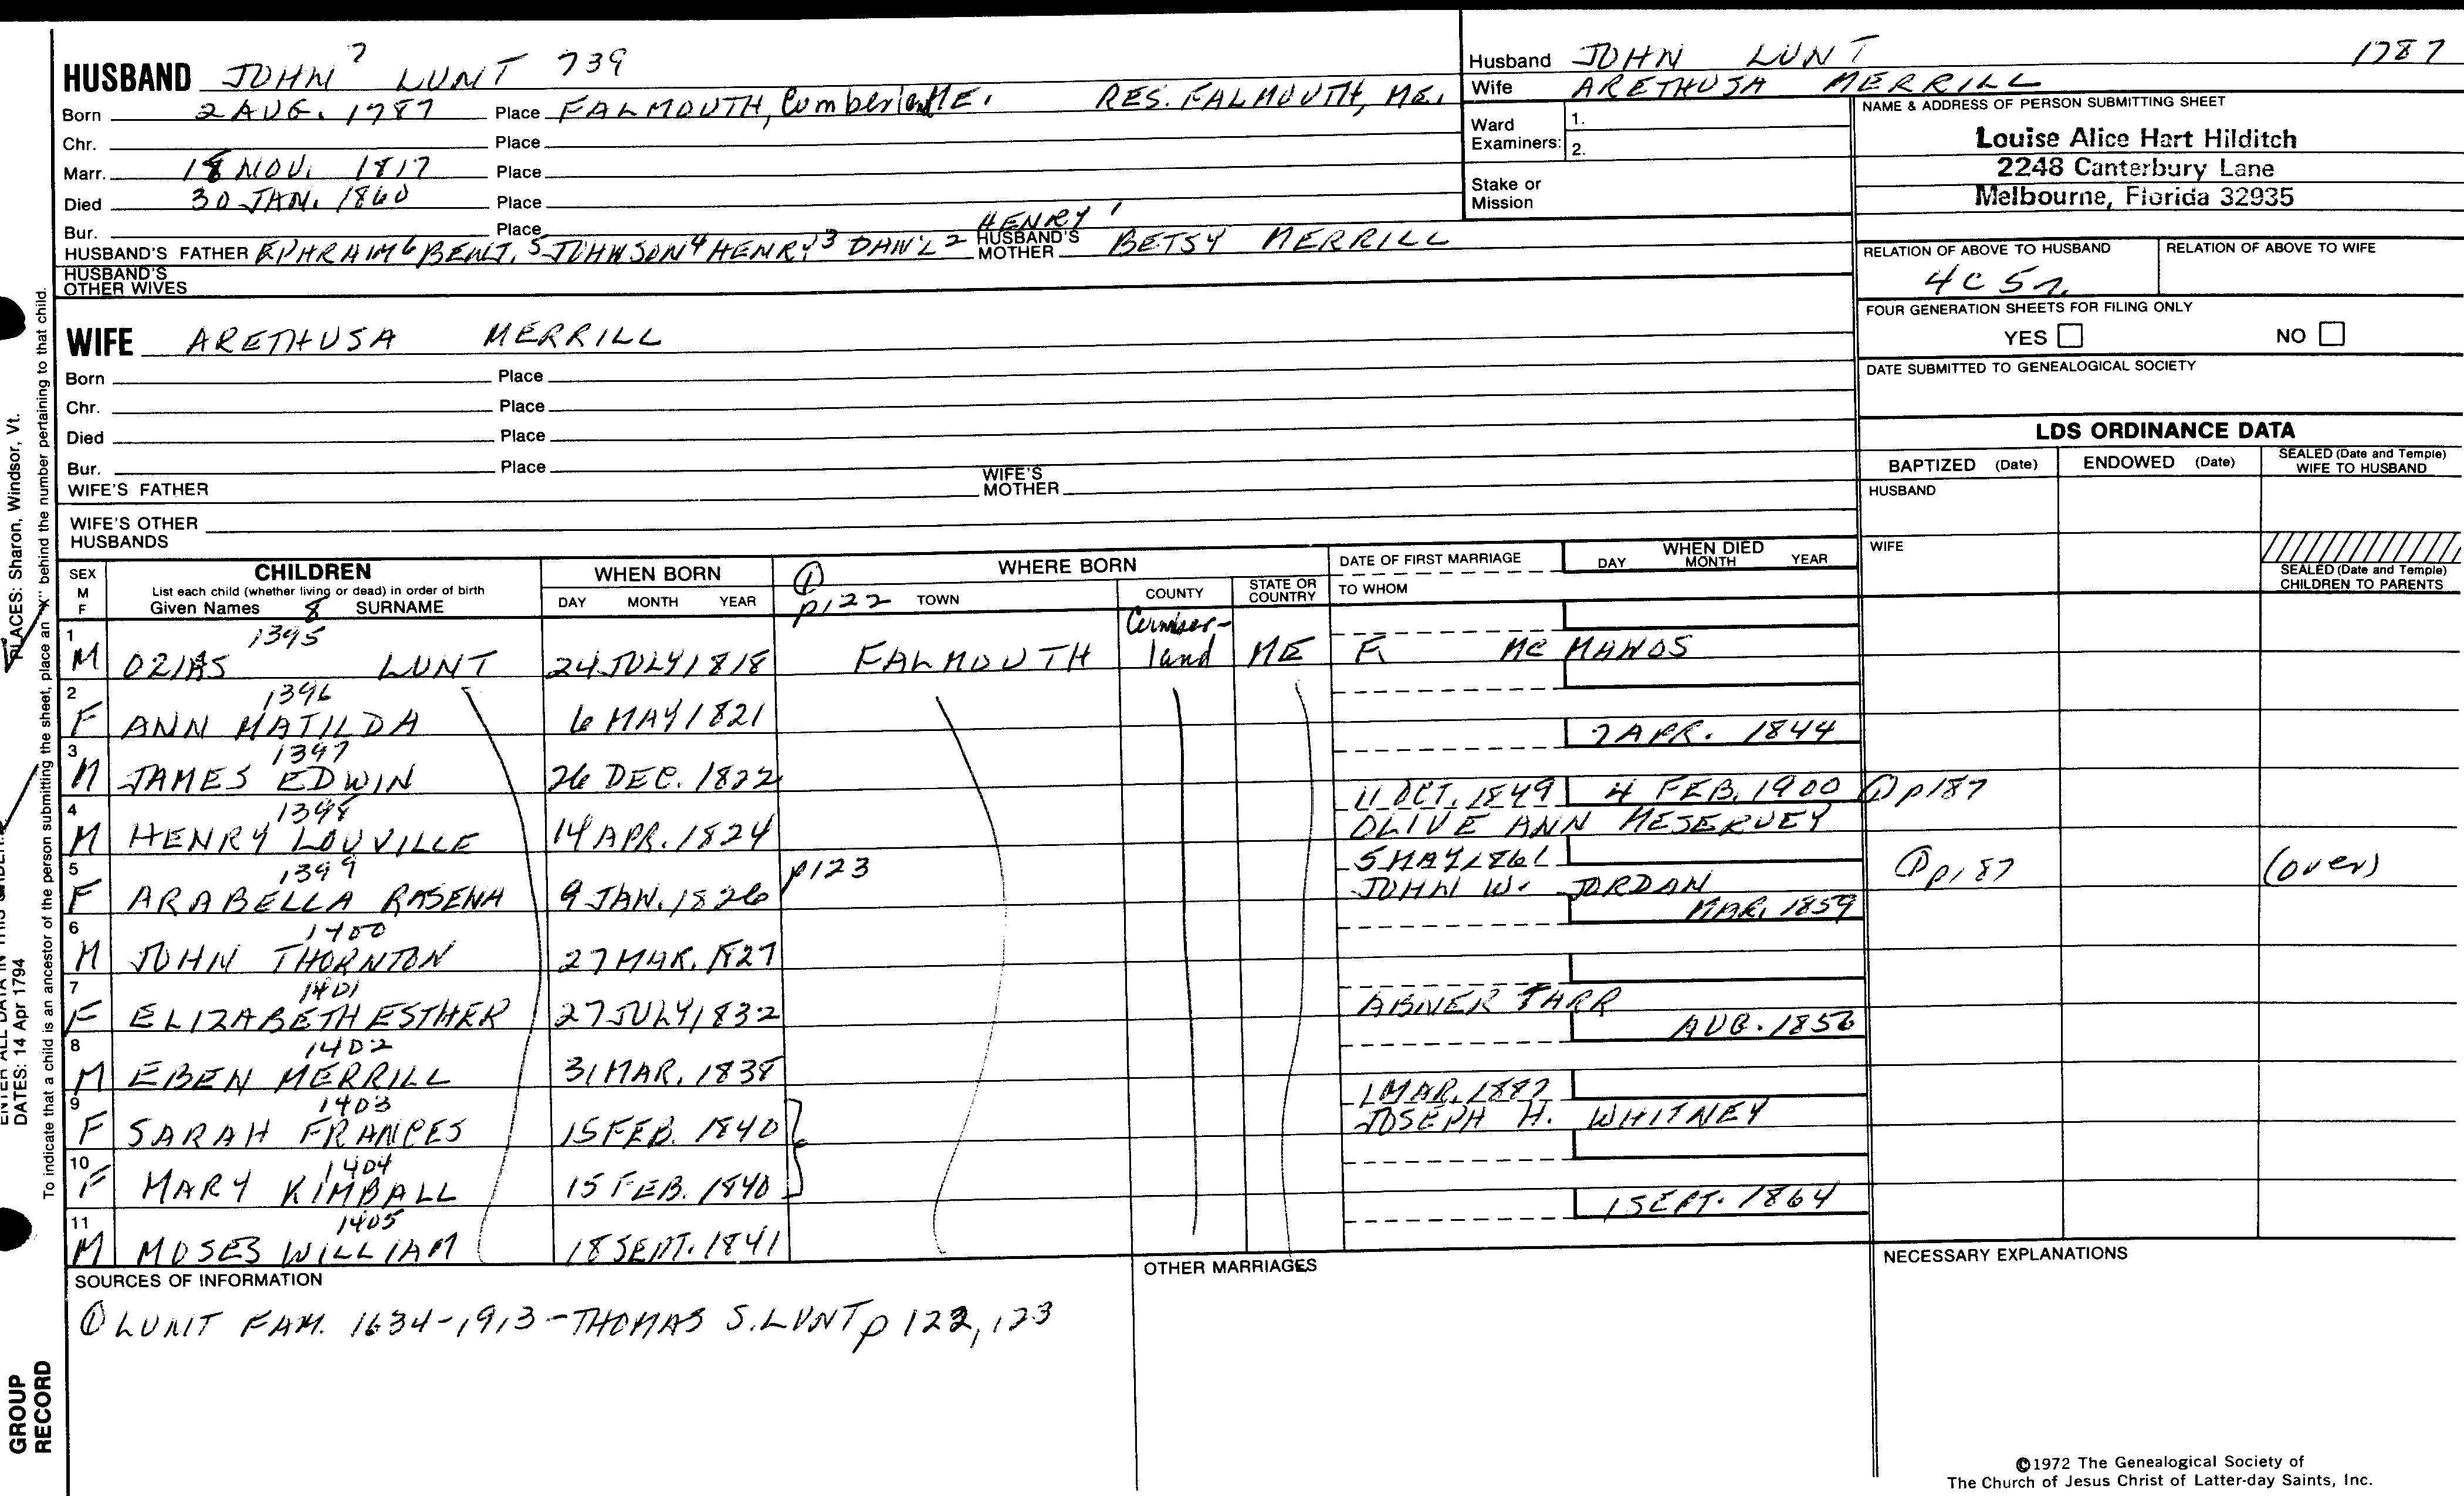 HUSBAND JOHN 7 LUNT 739
Born 2 AUG. 1787 Place FALMOUTH, Cumberland ME. RES. FALMOUTH, ME.
Chr. Place
Marr. 18 NOV. 1817 Place
Died 30 JAN. 1860 Place
Bur. Place
HUSBAND'S FATHER EPHRAIM 6 BENJ. 5 JOHNSON 4 HENRY 3 DAN'L 2 HENRY 1 HUSBAND'S MOTHER BETSY MERRILL
HUSBAND'S OTHER WIVES
Husband JOHN LUNT 1787
Wife ARETHUSA MERRILL
Ward Examiners: 1.
2.
Stake or Mission
NAME & ADDRESS OF PERSON SUBMITTING SHEET
Louise Alice Hart Hilditch
2248 Canterbury Lane
Melbourne, Florida 32935
RELATION OF ABOVE TO HUSBAND RELATION OF ABOVE TO WIFE
4C 5r.
FOUR GENERATION SHEETS FOR FILING ONLY
YES NO
DATE SUBMITTED TO GENEALOGICAL SOCIETY
WIFE ARETHUSA MERRILL
Born Place
Chr. Place
Died Place
Bur. Place
WIFE'S FATHER WIFE'S MOTHER
WIFE'S OTHER HUSBANDS
LDS ORDINANCE DATA
BAPTIZED (Date) ENDOWED (Date) SEALED (Date and Temple) WIFE TO HUSBAND
HUSBAND
WIFE
SEALED (Date and Temple) CHILDREN TO PARENTS
SEX M F
CHILDREN
List each child (whether living or dead) in order of birth
Given Names 8 SURNAME
WHEN BORN
DAY MONTH YEAR
WHERE BORN
① p122 TOWN COUNTY STATE OR COUNTRY
DATE OF FIRST MARRIAGE
TO WHOM
WHEN DIED
DAY MONTH YEAR
1 1395
M OZIAS LUNT 24 JULY 1818 FALMOUTH Cumber-land ME F. MC MANOS
2 1396
F ANN MATILDA 6 MAY 1821
7 APR. 1844
3 1397
M JAMES EDWIN 26 DEC. 1822
11 OCT. 1849 4 FEB. 1900 ① p187
4 1398
M HENRY LOUVILLE 14 APR. 1824 OLIVE ANN MESERVEY
5 MAY 1861 ① p187 (over)
5 1399 p123
F ARABELLA ROSENA 9 JAN. 1826 JOHN W. JORDAN
MAR. 1859
6 1400
M JOHN THORNTON 27 MAR. 1827
7 1401
F ELIZABETH ESTHER 27 JULY 1832 ABNER TARR
AUG. 1856
8 1402
M EBEN MERRILL 31 MAR. 1838
1 MAR. 1887
9 1403
F SARAH FRANCES 15 FEB. 1840 JOSEPH H. WHITNEY
10 1404
F MARY KIMBALL 15 FEB. 1840
1 SEPT. 1864
11 1405
M MOSES WILLIAM 18 SEPT. 1841
SOURCES OF INFORMATION
① LUNT FAM. 1634-1913 - THOMAS S. LUNT p 122, 123
OTHER MARRIAGES
NECESSARY EXPLANATIONS
©1972 The Genealogical Society of
The Church of Jesus Christ of Latter-day Saints, Inc.
To indicate that a child is an ancestor of the person submitting the sheet, place an "X" behind the number pertaining to that child.
PLACES: Sharon, Windsor, Vt.
DATES: 14 Apr 1794
GROUP
RECORD